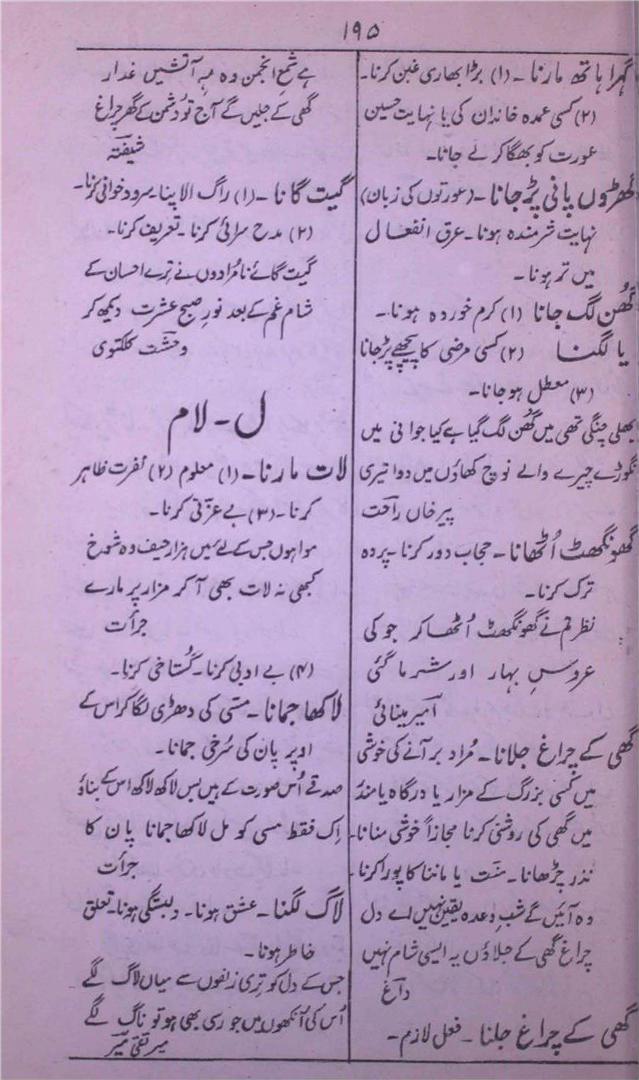 ۱۹۵
گہرا ہاتھ مارنا۔ (۱) بڑا بھاری غبن کرنا۔
(۲) کسی عمدہ خاندان کی یا نہایت حسین
عورت کو بھگا کر لے جانا۔
گھڑوں پانی پڑ جانا۔ (عورتوں کی زبان)
نہایت شرمندہ ہونا۔ عرق انفعال
میں تر ہونا۔
گھُن لگ جانا (۱) کرم خوردہ ہونا۔
یا لگنا (۲) کسی مرضی کا پیچھے پڑ جانا
(۳) معطل ہو جانا۔
بھلی چنگی تھی میں گھُن لگ گیا ہے کیا جوانی میں
نگوڑے چیرے والے نوچ کھاؤں میں دوا تیری
پیر خاں راحت
گھونگھٹ اُٹھانا۔ حجاب دور کرنا۔ پردہ
ترک کرنا۔
نظر تم نے گھونگھٹ اُٹھا کر جو کی
عروسِ بہار اور شرما گئی
امیر مینائی
گھی کے چراغ جلانا۔ مُراد بر آنے کی خوشی
میں کسی بزرگ کے مزار یا درگاہ یا مندر
میں گھی کی روشنی کرنا مجازاً خوشی منانا۔
نذر چڑھانا۔ منت یا ماننا کا پورا کرنا
وہ آئیں گے شبِ وعدہ یقین نہیں اے دل
چراغ گھی کے جلاؤں یہ ایسی شام نہیں
داغ
گھی کے چراغ جلنا۔ فعل لازم۔
ہے شمعِ انجمن وہ مہِ آتشیں غدار
گھی کے جلیں گے آج تو دُشمن کے گھر چراغ
شیفتہ
گیت گانا۔ (۱) راگ الاپنا۔ سرود خوانی کرنا۔
(۲) مدح سرائی کرنا۔ تعریف کرنا۔
گیت گائے نامُرادوں نے ترے احسان کے
شام غم کے بعد نورِ صبح عشرت دیکھ کر
وحشت کلکتوی
ل۔ لام
لات مارنا۔ (۱) معلوم (۲) نفرت ظاہر
کرنا۔ (۳) بے عزتی کرنا۔
موا ہوں جس کے لئے میں ہزار حیف وہ شوخ
کبھی نہ لات بھی آ کر مزار پر مارے
جرأت
(۴) بے ادبی کرنا۔ گُستاخی کرنا۔
لاکھا جمانا۔ مسّی کی دھڑی لگا کر اس کے
اوپر پان کی سُرخی جمانا۔
صدقے اُس صورت کے ہیں بس لاکھ لاکھ اس کے بناؤ
اِک فقط مسی کو مل لاکھا جمانا پان کا
جرأت
لاگ لگنا۔ عشق ہونا۔ دلبستگی ہونا۔ تعلق
خاطر ہونا۔
جس کے دل کو تری زلفوں سے میاں لاگ لگے
اُس کی آنکھوں میں جو رسی بھی ہو تو ناگ لگے
میر تقی میر